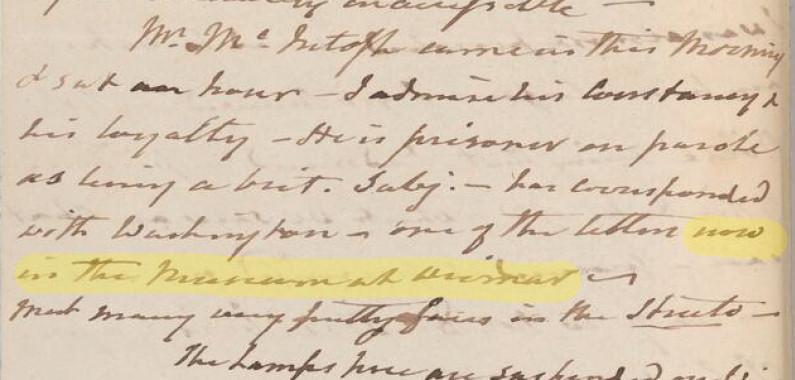 inaccessible —
Mr. Mc. Intosh came in this Morning
& sat an hour – I admire his Constancy &
his loyalty – He is prisoner on parole
as being a brit. Subj: – has corresponded
with Washington – one of the letters now
in the Museum at Weimar –
met many very pretty faces in the Streets –
The Lamps here are suspended